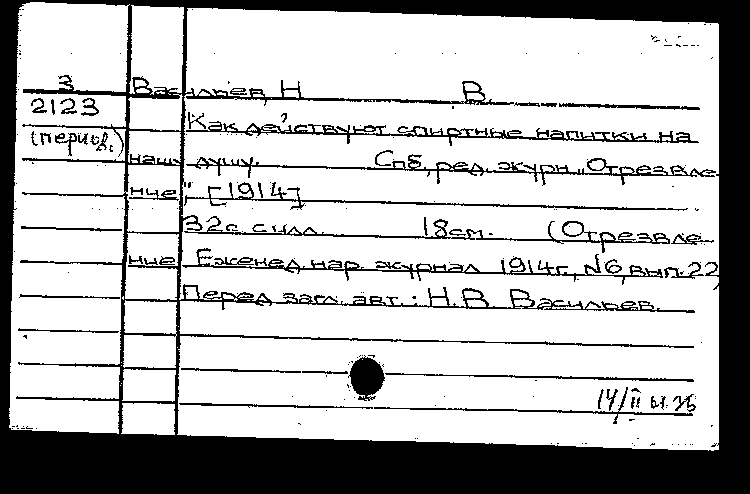 3
Васильев, Н В.
2123
Как действуют спиртные напитки на
(период.)
нашу душу. Спб, ред. журн. „Отрезвле-
ние", [1914]
32с. с илл. 18см. (Отрезвле-
ние. Еженед. нар. журнал 1914г., №6, вып. 22)
Перед загл. авт.: Н.В. Васильев.
14/II